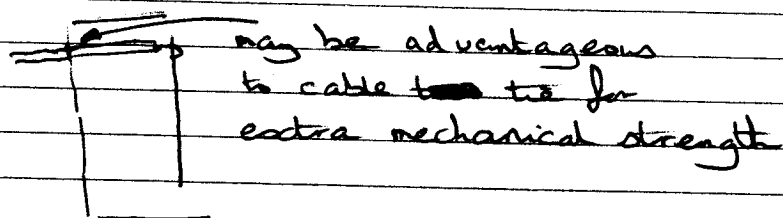 may be advantageous
to cable tie for
extra mechanical strength